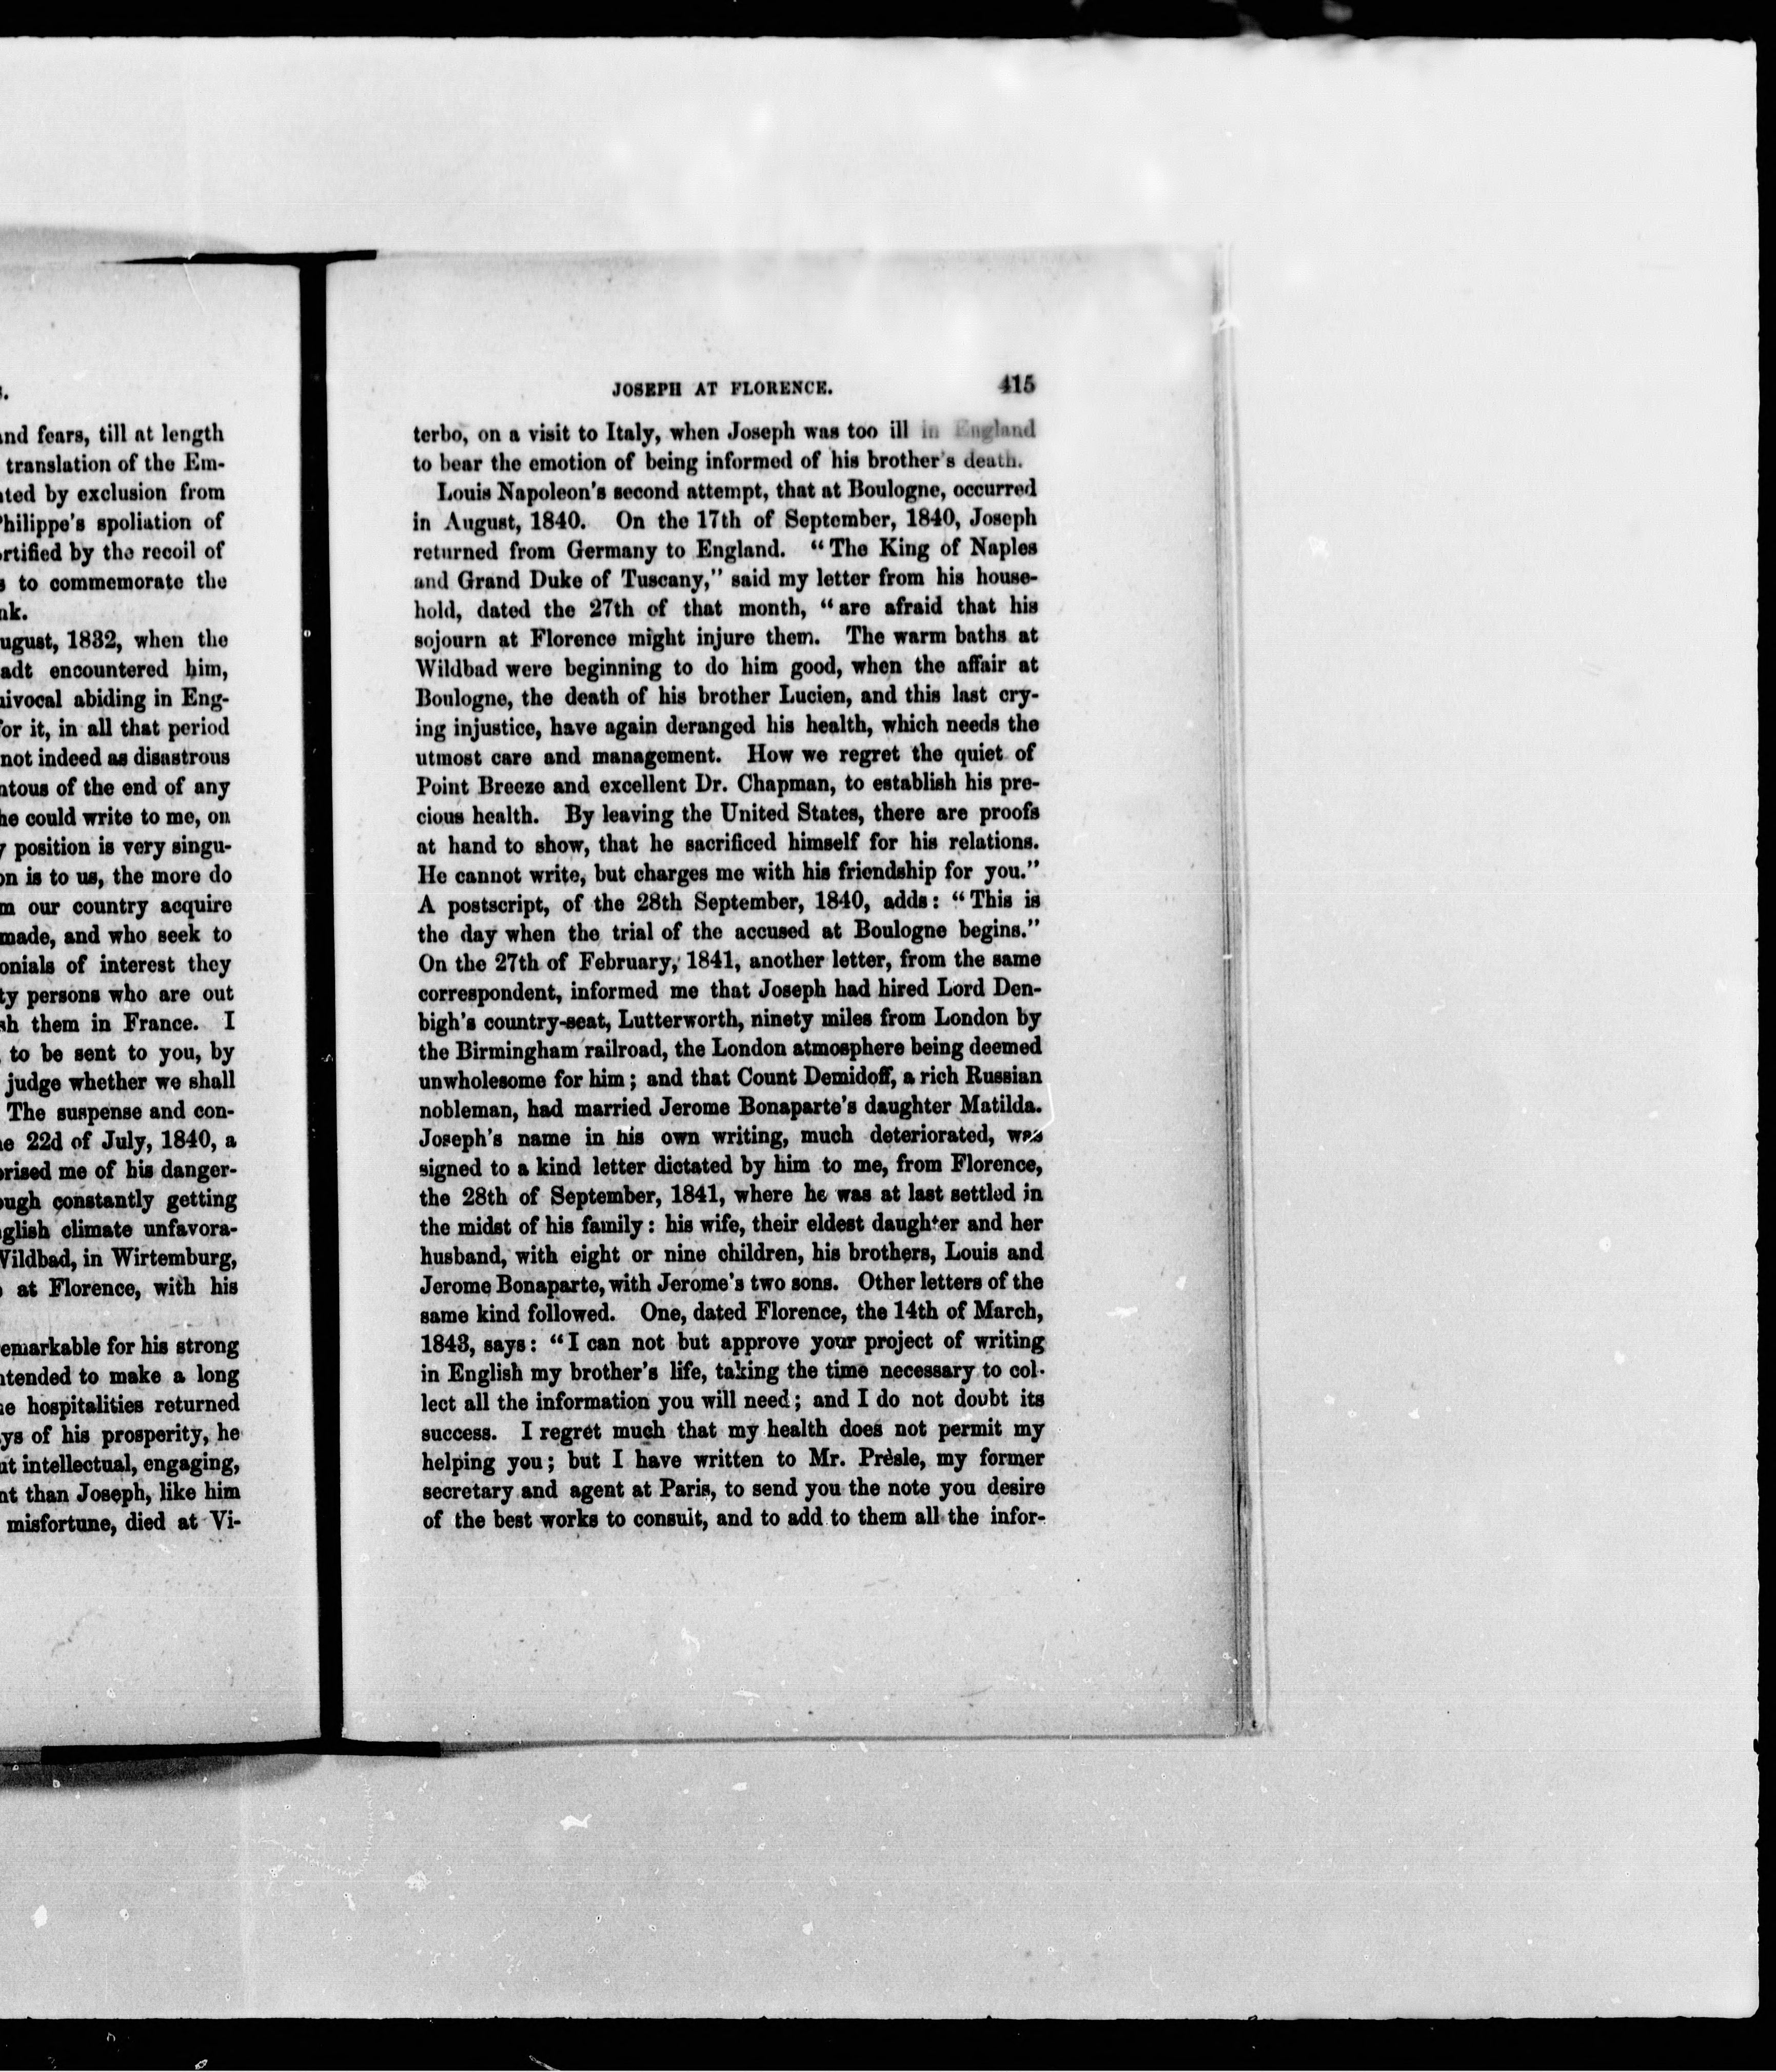 s.
and fears, till at length
translation of the Em-
ated by exclusion from
Philippe's spoliation of
ortified by the recoil of
s to commemorate the
nk.
ugust, 1832, when the
adt encountered him,
uivocal abiding in Eng-
for it, in all that period
not indeed as disastrous
ntous of the end of any
he could write to me, on
y position is very singu-
on is to us, the more do
m our country acquire
made, and who seek to
onials of interest they
ty persons who are out
sh them in France. I
to be sent to you, by
judge whether we shall
The suspense and con-
he 22d of July, 1840, a
prised me of his danger-
ough constantly getting
nglish climate unfavora-
Wildbad, in Wirtemburg,
at Florence, with his
emarkable for his strong
ntended to make a long
he hospitalities returned
ys of his prosperity, he
ut intellectual, engaging,
nt than Joseph, like him
misfortune, died at Vi-
JOSEPH AT FLORENCE. 415
terbo, on a visit to Italy, when Joseph was too ill in England
to bear the emotion of being informed of his brother's death.
Louis Napoleon's second attempt, that at Boulogne, occurred
in August, 1840. On the 17th of September, 1840, Joseph
returned from Germany to England. "The King of Naples
and Grand Duke of Tuscany," said my letter from his house-
hold, dated the 27th of that month, "are afraid that his
sojourn at Florence might injure them. The warm baths at
Wildbad were beginning to do him good, when the affair at
Boulogne, the death of his brother Lucien, and this last cry-
ing injustice, have again deranged his health, which needs the
utmost care and management. How we regret the quiet of
Point Breeze and excellent Dr. Chapman, to establish his pre-
cious health. By leaving the United States, there are proofs
at hand to show, that he sacrificed himself for his relations.
He cannot write, but charges me with his friendship for you."
A postscript, of the 28th September, 1840, adds: "This is
the day when the trial of the accused at Boulogne begins."
On the 27th of February, 1841, another letter, from the same
correspondent, informed me that Joseph had hired Lord Den-
bigh's country-seat, Lutterworth, ninety miles from London by
the Birmingham railroad, the London atmosphere being deemed
unwholesome for him; and that Count Demidoff, a rich Russian
nobleman, had married Jerome Bonaparte's daughter Matilda.
Joseph's name in his own writing, much deteriorated, was
signed to a kind letter dictated by him to me, from Florence,
the 28th of September, 1841, where he was at last settled in
the midst of his family: his wife, their eldest daughter and her
husband, with eight or nine children, his brothers, Louis and
Jerome Bonaparte, with Jerome's two sons. Other letters of the
same kind followed. One, dated Florence, the 14th of March,
1843, says: "I can not but approve your project of writing
in English my brother's life, taking the time necessary to col-
lect all the information you will need; and I do not doubt its
success. I regret much that my health does not permit my
helping you; but I have written to Mr. Prèsle, my former
secretary and agent at Paris, to send you the note you desire
of the best works to consult, and to add to them all the infor-